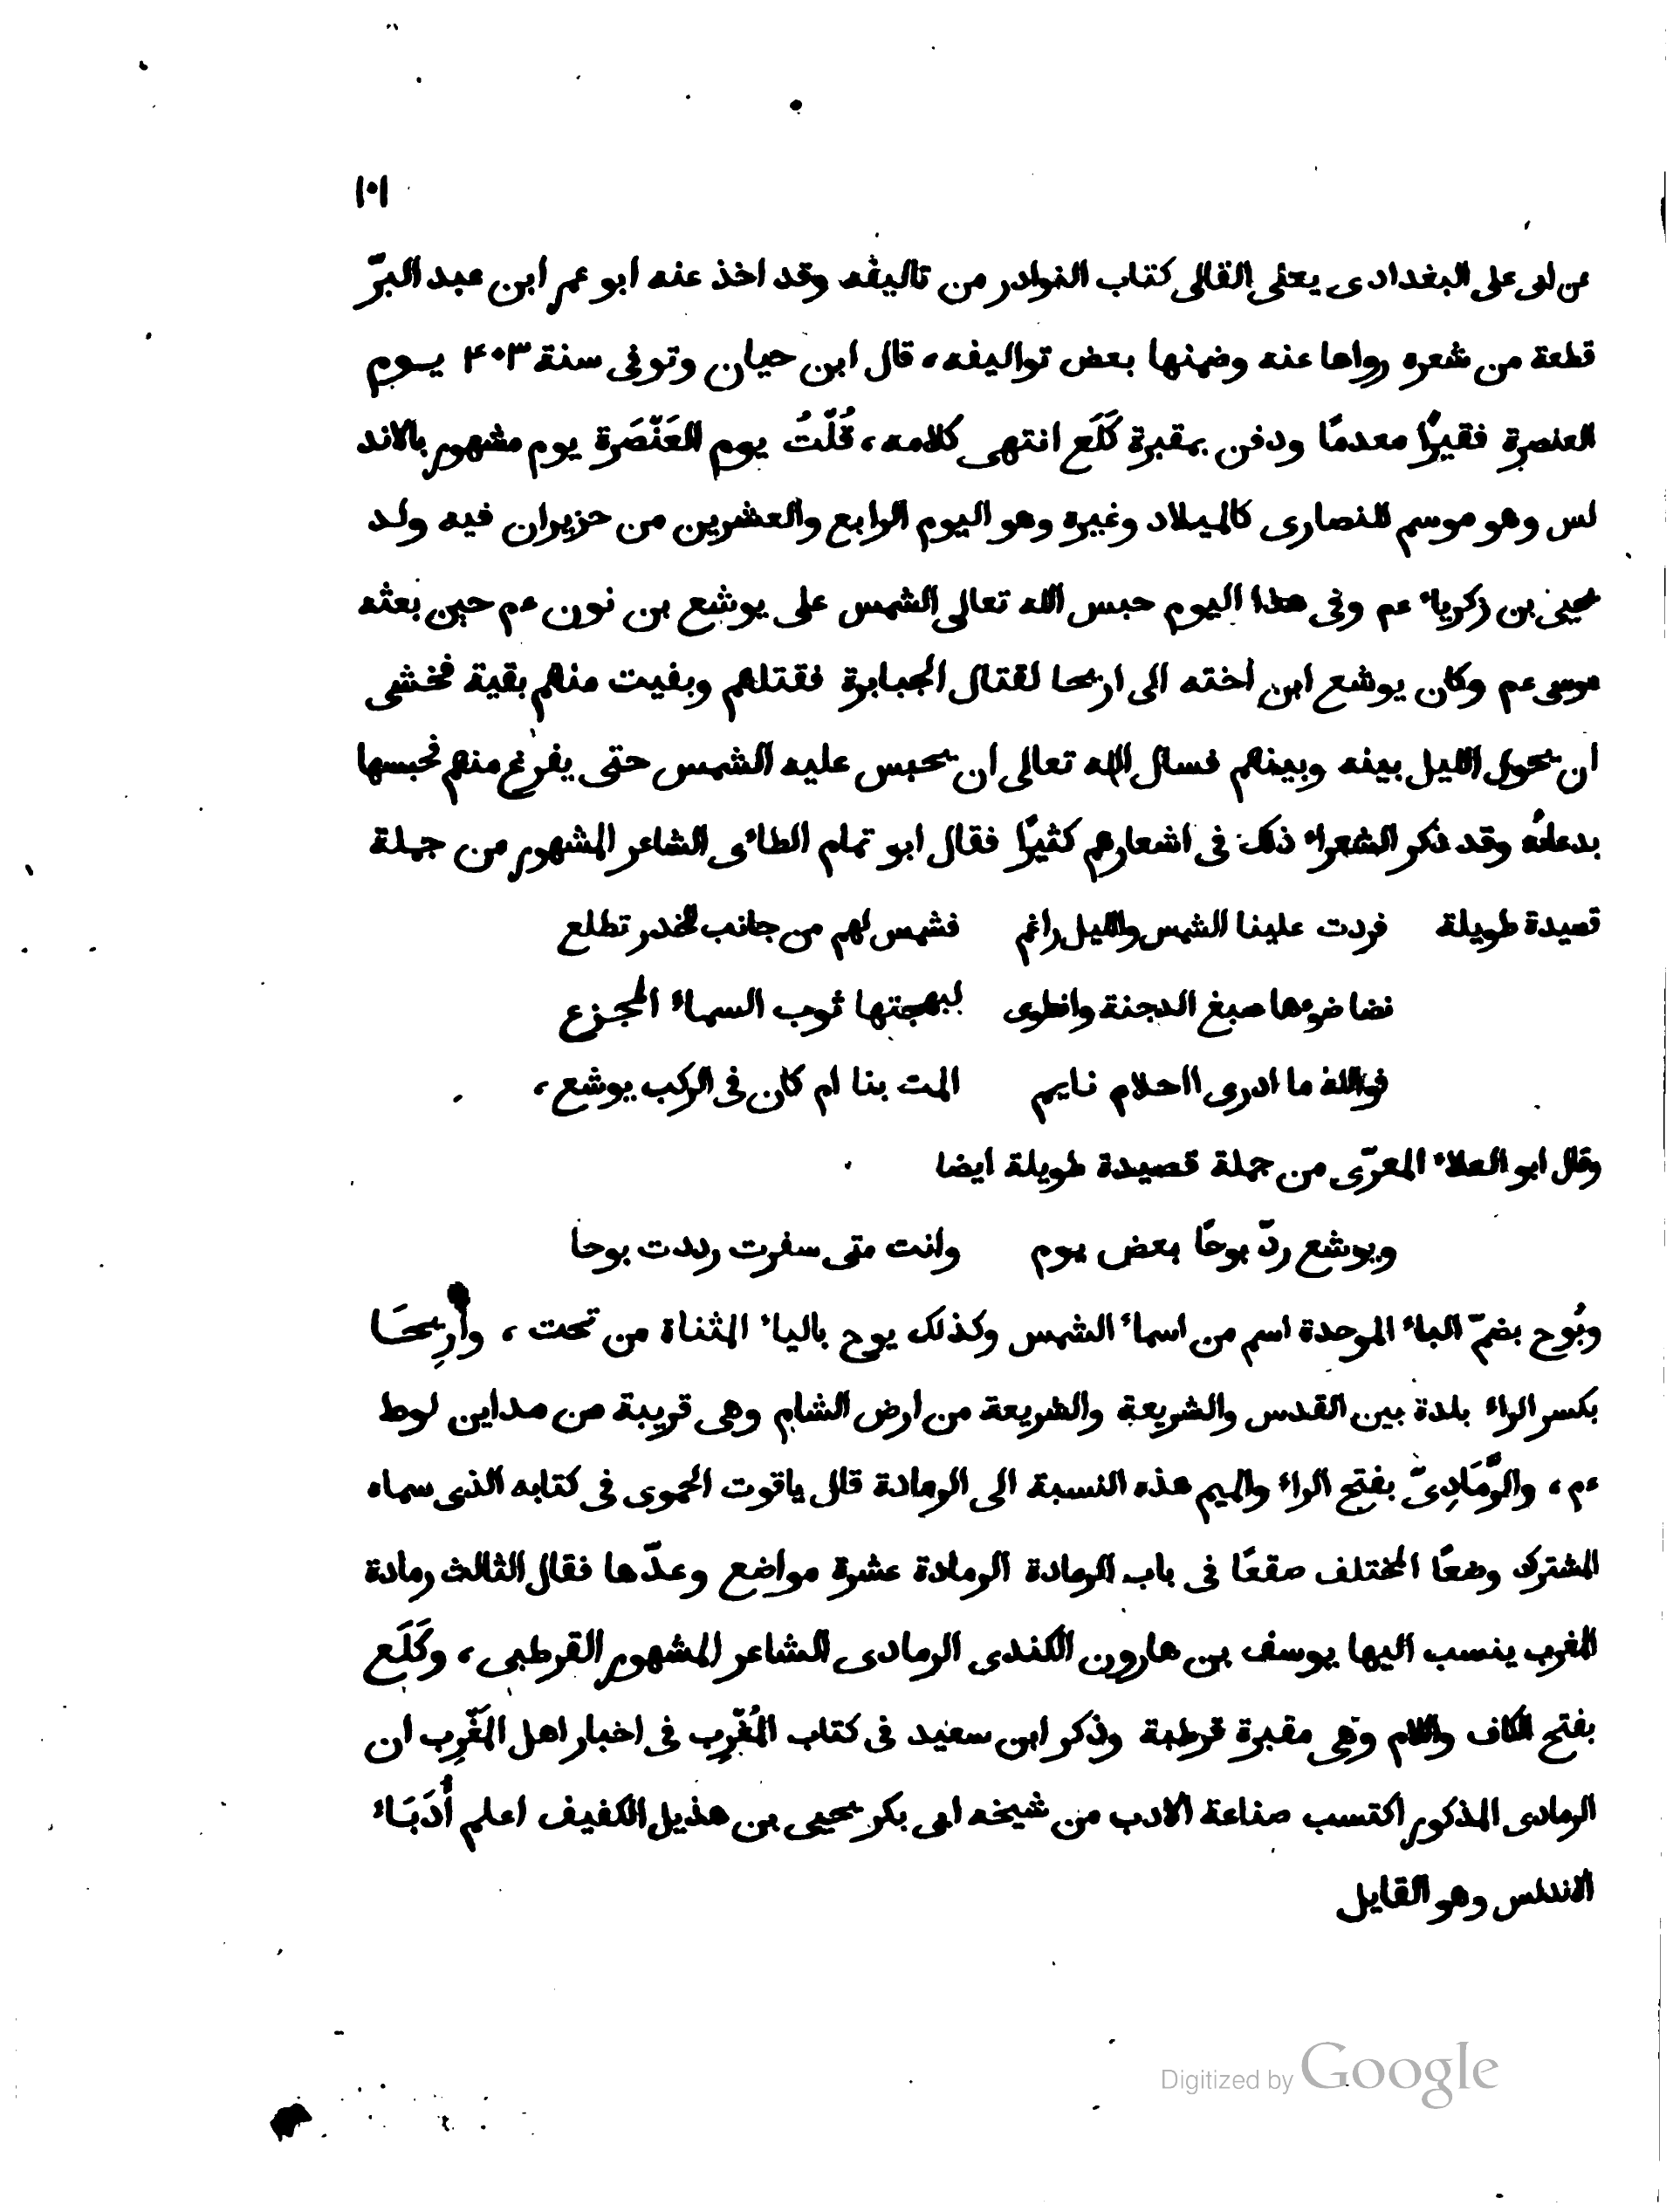 ١٠١
عن ابى على البغدادى يعنى القالى كتاب النوادر من تاليفه وقد اخذ عنه ابو عمر ابن عبد البرّ
قطعة من شعره رواها عنه وضمنها بعض تواليفه، قال ابن حيان وتوفى سنة ۴۰۳ يوم
العنصرة فقيرًا معدمًا ودفن بمقبرة كَلَع انتهى كلامه، قُلْتُ يوم العَنْصَرة يوم مشهور بالاند
لس وهو موسم للنصارى كالميلاد وغيره وهو اليوم الرابع والعشرين من حزيران فيه ولد
يحيى بن زكرياء عم وفى هذا اليوم حبس الله تعالى الشمس على يوشع بن نون عم حين بعثه
موسى عم وكان يوشع ابن اخته الى اريحا لقتال الجبابرة فقتلهم وبقيت منهم بقية فخشى
ان يحول الليل بينه وبينهم فسال الله تعالى ان يحبس عليه الشمس حتى يفرغ منهم فحبسها
بدعائه وقد ذكر الشعراء ذلك فى اشعارهم كثيرًا فقال ابو تمام الطائى الشاعر المشهور من جملة
قصيدة طويلة فردت علينا الشمس والليل راغم فشمس لهم من جانب الخدر تطلع
نضا ضوءها صبغ الدجنة وانطوى لبهجتها ثوب السماء المجزع
فوالله ما ادرى ااحلام نايم المت بنا ام كان فى الركب يوشع،
وقال ابو العلاء المعرّى من جملة قصيدة طويلة ايضا
ويوشع ردّ بوحًا بعض يوم وانت متى سفرت رددت بوحا
وبُوح بضمّ الباء الموحدة اسم من اسماء الشمس وكذلك يوح بالياء المثناة من تحت، وأَرِيحَا
بكسر الراء بلدة بين القدس والشريعة والشريعة من ارض الشام وهى قريبة من مداين لوط
عم، والرَّمَادِىّ بفتح الراء والميم هذه النسبة الى الرمادة قال ياقوت الحموى فى كتابه الذى سماه
المشترك وضعًا المختلف صقعًا فى باب الرمادة الرمادة عشرة مواضع وعدّها فقال الثالث رمادة
المغرب ينسب اليها يوسف بن هارون الكندى الرمادى الشاعر المشهور القرطبى، وكَلَع
بفتح الكاف واللام وهى مقبرة قرطبة وذكر ابن سعيد فى كتاب المُغْرِب فى اخبار اهل المَغْرِب ان
الرمادى المذكور اكتسب صناعة الادب من شيخه ابى بكر يحيى بن هذيل الكفيف اعلم أُدَبَاء
الاندلس وهو القايل
Digitized by Google